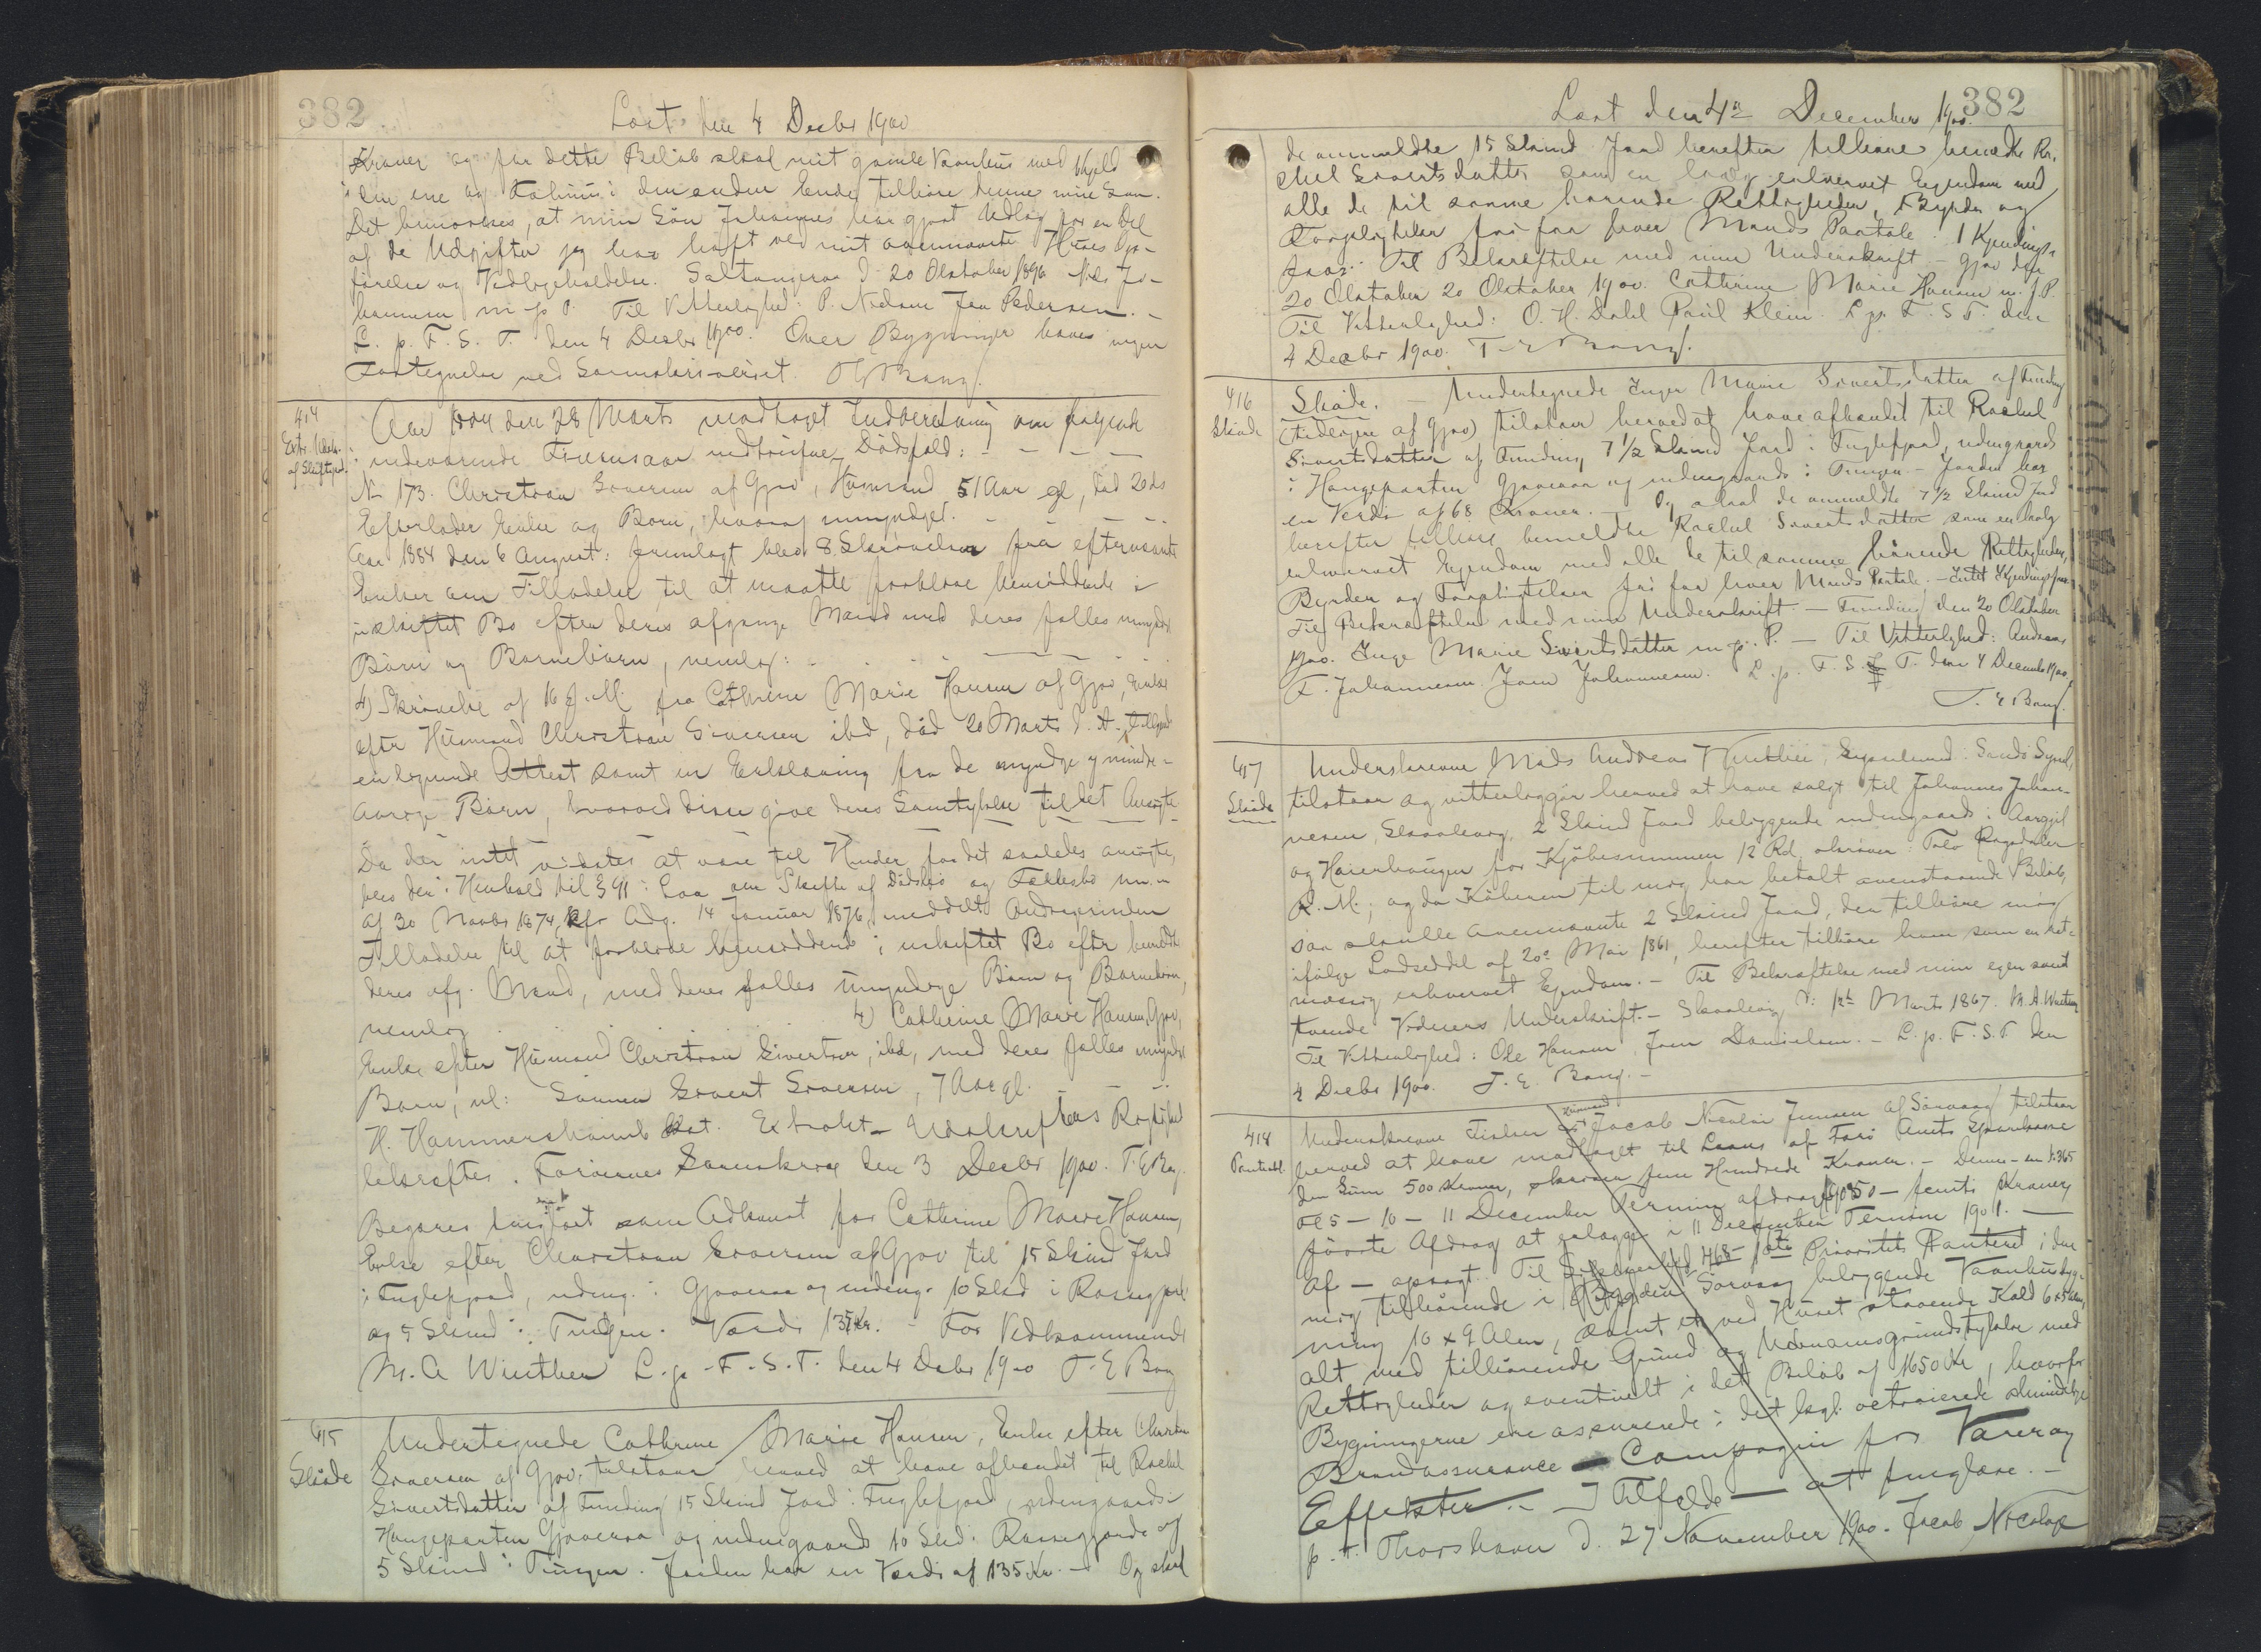 382
Læst den 4 Decbr 1900
Kroner og for dette Beløb skal mit gamle Vaanhus med Kjeld
i den ene og i den anden Ende tilhøre denne min Søn.
Det bemærkes, at min Søn Johannes har gjort Udlæg for en Del
af de Udgifter jeg har haft ved mit ovennævnte Huses Op-
førelse og Vedligeholdelse. Saltangeraa d. 20 Oktober 1890 Jo-
hannesen m. f. P. Til Vitterlighed: P. Nielsen Jen Pedersen. -
L. p. F. S. T. den 4 Decbr 1900. Over Bygninger haves ingen
Fortegnelse ved Sorenskriveriet. T E Bang.
414
Extr. Udskr.
af Skifteprot.
Aar 1884 den 28 Marts modtoget Indberetning om følgende
i indeværende Fjerensaar indtrufne Dødsfald: - - - -
No 173. Christian Sivertsen af Gjov, Husmand 51 Aar gl, død 20 ds
Efterlader Enke og Børn, hvoraf umyndiget. -
Aar 1884 den 6 August: fremlagt blev 8 Skrivelser fra efternævnte
Enker om Tilladelse til at maatte forblive hensiddende i
uskiftet Bo efter deres afgangne Mænd med deres fælles umyndige
Børn og Børnebørn, nemlig: - - -
4) Skrivelse af 16 f. M. fra Cathrine Marie Hansen af Gjov, Enke
efter Husmand Christian Sivertsen ibd, død 20 Marts d. A.,
en lignende Attest samt en Erklæring fra de myndige og minde-
aarige Børn, hvorved disse give deres Samtykke til det Ansøgte
Da der intet vidstes at være til Hinder for det saaledes ansøgte,
blev der i Henhold til § 91 i Lov om Skifte af Dødsbo og Fællesbo m. m
af 30 Novbr 1874, kfr Adg. 14 Januar 1876, meddelt Andragerinden
Tilladelse til at forblive hensiddende i uskiftet Bo efter bemeldte
deres afg. Mænd, med deres fælles umyndige Børn og Børnebørn,
nemlig 4) Cathrine Marie Hansen, Gjov,
Enke efter Husmand Christian Sivertsen, ibd, med deres fælles umyndige
Barn, nl: Sønnen Sivert Sivertsen, 7 Aar gl. - -
H. Hammershaimb Kst. Extrakt-Udskriftens Rigtighed
bekræftes. Færøernes Sorenskriveri den 3 Decbr 1900. T. E Bang.
Begæres tinglæst som Adkomst for Cathrine Marie Hansen,
Enke efter Christian Sivertsen af Gjov til 15 Skind Jord
i Fuglefjord, udeng. i Gjoveraa og indeng. 10 Skd i Rossegjerde
og 5 Skind i Tungen. Værdi 135 Kr. - For Vedkommende
M. A Winther L. p. F. S. T. den 4 Decbr 1900 T. E Bang
415
Skjøde
Undertegnede Cathrine Marie Hansen, Enke efter Christian
Sivertsen af Gjov, tilstaar herved at have afhændet til Rachel
Sivertsdatter af Funding 15 Skind Jord i Fuglefjord, udengaards i
Hangeparten Gjoveraa og indengaards 10 Skd i Rossegjerde og
5 Skind i Tungen. Jorden har en Værdi af 135 Kr. - Og skal
382
Læst den 4de December 1900.
de anmeldte 15 Skind Jord herefter tilhøre bemeldte Ra-
chel Sivertsdatter som en lovlig erhvervet Ejendom med
alle de til samme hørende Rettigheder, Byrder og
Forpligtelser fri for hver Mands Paatale. 1 Kjendings-
faar. Til Bekræftelse med min Underskrift - Gjov den
20 Oktober 20 Oktober 1900. Cathrine Marie Hansen m. f. P.
Til Vitterlighed: O. H. Dahl Poul Klein. L. p. F. S T. den
4 Decbr 1900. T. E Bang.
416
Skjøde
Skjøde. - Undertegnede Inger Marie Sivertsdatter af Funding
(tidligere af Gjov) tilstaar herved at have afhændet til Rachel
Sivertsdatter af Funding 7 1/2 Skind Jord i Fuglefjord, udengaards
i Hangeparten Gjoveraa og indengaards i Tungen. - Jorden har
en Værdi af 68 Kroner. - Og skal de anmeldte 7 1/2 Skind Jord
herefter tilhøre bemeldte Rachel Sivertsdatter som en lovlig
erhvervet Ejendom med alle de til samme hørende Rettigheder,
Byrder og Forpligtelser fri for hver Mands Paatale. - Intet Kjendingsfaar
Til Bekræftelse med min Underskrift. - Funding den 20 Oktober
1900. Inger Marie Sivertsdatter m. f. P. - Til Vitterlighed: Andreas
F. Johannesen. Joen Johannesen. L. p. F. S. T. den 4 December 1900.
T. E Bang.
417
Skjøde
Underskrevne Mads Andreas Winther, Sysselmand i Sandø Syssel,
tilstaar og vitterliggjør herved at have solgt til Johannes Johan-
nesen, Skaalevig, 2 Skind Jord beliggende indengaards i
og for Kjøbesummen 12 Rd, skriver: Tolv Rigsdaler
R. M.; og da Køberen til mig har betalt ovenstaaende Beløb,
saa skulle ovennævnte 2 Skind Jord, der tilhøre mig
ifølge Lodseddel af 20de Mai 1861, herefter tilhøre ham som en ret-
mæssig erhvervet Ejendom. - Til Bekræftelse med min egen samt
tvende Vidners Underskrift. - Skaalevig d: 12te Marts 1867. M. A. Winther
Til Vitterlighed: Ole Hansen Joen Danielsen. - L. p. F. S. T. den
4 Decbr 1900. T. E. Bang. -
418
Pantobl.
Underskrevne Fisker Jacob Nicolai Jensen af Sørvaag tilstaar
herved at have modtaget til Laans af Færø Amts Sparekasse
den Sum 500 Kroner, skriver fem Hundrede Kroner. - Denne - en 1:365
til 5 - 10 - 11 December Termin afdrages 50 - femti Kroner,
første Afdrag at erlægge i 11 December Termin 1901. -
af - opsagt. Til Sikkerhed 468 - 1ste Prioritets Panteret i den
mig tilhørende i Bygden Sørvaag beliggende Vaanhusbyg-
ning 10 x 9 Alen, samt et ved Huset staaende Kjeld 6 x 5 Alen,
alt med tilhørende Grund og Udenomsgrundstykke med
Rettigheder og eventuelt i det Beløb af 1650 Kr, hvorfor
Bygningerne ere assurerede i det kgl. octroierede almindelige
Brandassurance Compagni for Varer og
Effekter. - I Tilfælde - at fungere. -
p. t. Thorshavn d. 27 November 1900. Jacob Nicolai